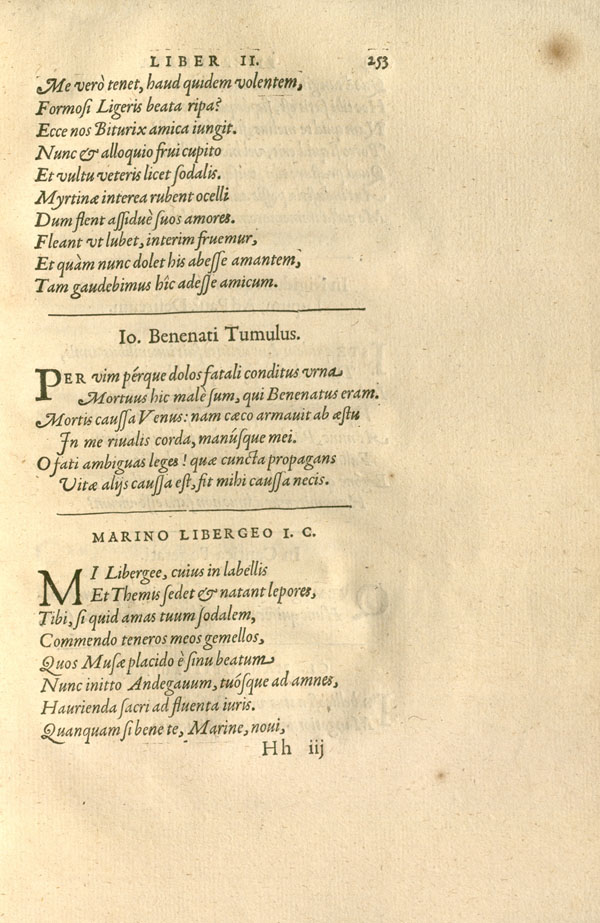 LIBER II. 253
Me verò tenet, haud quidem volentem,
Formoſi Ligeris beata ripa?
Ecce nos Biturix amica iungit.
Nunc & alloquio frui cupito
Et vultu veteris licet ſodalis.
Myrtinæ interea rubent ocelli
Dum flent aſſiduè ſuos amores.
Fleant vt lubet, interim fruemur,
Et quàm nunc dolet his abeſſe amantem,
Tam gaudebimus hîc adeſſe amicum.
Io. Benenati Tumulus.
PER vim pérque dolos fatali conditus vrna
Mortuus hic malè ſum, qui Benenatus eram.
Mortis cauſſa Venus: nam cæco armauit ab æſtu
In me riualis corda, manúſque mei.
O fati ambiguas leges! quæ cuncta propagans
Vitæ alijs cauſſa eſt, fit mihi cauſſa necis.
MARINO LIBERGEO I. C.
MI Libergee, cuius in labellis
Et Themis ſedet & natant lepores,
Tibi, ſi quid amas tuum ſodalem,
Commendo teneros meos gemellos,
Quos Muſæ placido è ſinu beatum
Nunc initto Andegauum, tuóſque ad amnes,
Haurienda ſacri ad fluenta iuris.
Quanquam ſi bene te, Marine, noui,
Hh iij